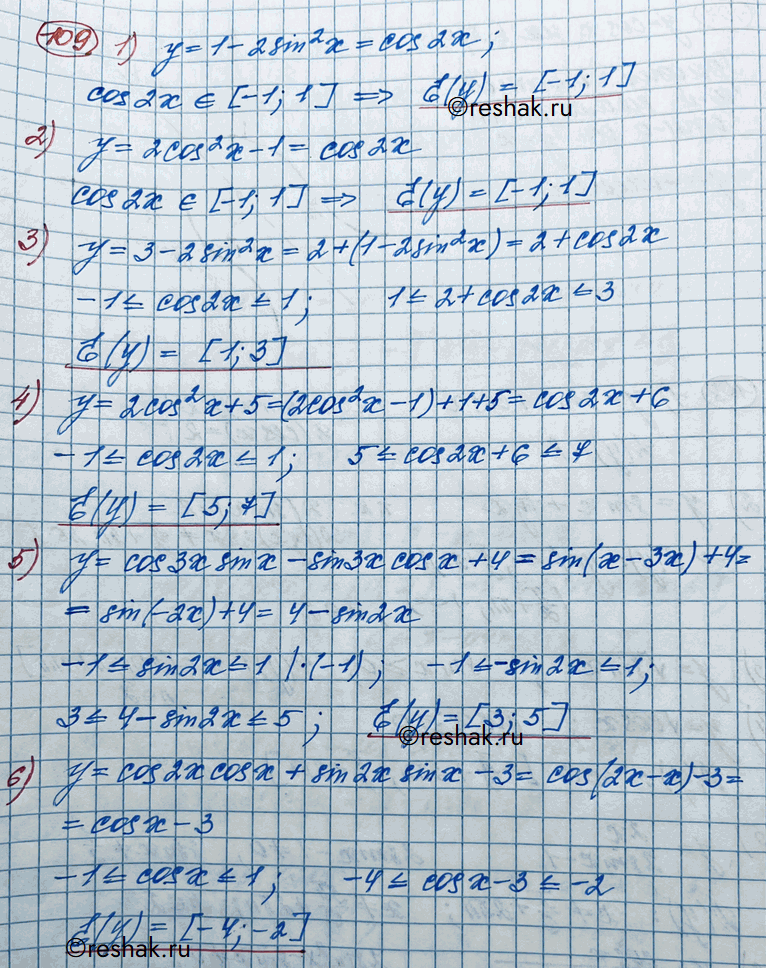 109 1) y = 1 - 2sin²x = cos2x;
cos2x ∈ [-1; 1] ⇒ E(y) = [-1; 1]
©reshak.ru
2) y = 2cos²x - 1 = cos2x
cos2x ∈ [-1; 1] ⇒ E(y) = [-1; 1]
3) y = 3 - 2sin²x = 2 + (1 - 2sin²x) = 2 + cos2x
-1 ≤ cos2x ≤ 1; 1 ≤ 2 + cos2x ≤ 3
E(y) = [1; 3]
4) y = 2cos²x + 5 = (2cos²x - 1) + 1 + 5 = cos2x + 6
-1 ≤ cos2x ≤ 1; 5 ≤ cos2x + 6 ≤ 7
E(y) = [5; 7]
5) y = cos3x sinx - sin3x cosx + 4 = sin(x - 3x) + 4 =
= sin(-2x) + 4 = 4 - sin2x
-1 ≤ sin2x ≤ 1 | · (-1); -1 ≤ -sin2x ≤ 1;
3 ≤ 4 - sin2x ≤ 5; E(y) = [3; 5]
©reshak.ru
6) y = cos2x cosx + sin2x sinx - 3 = cos(2x - x) - 3 =
= cosx - 3
-1 ≤ cosx ≤ 1; -4 ≤ cosx - 3 ≤ -2
E(y) = [-4; -2]
©reshak.ru